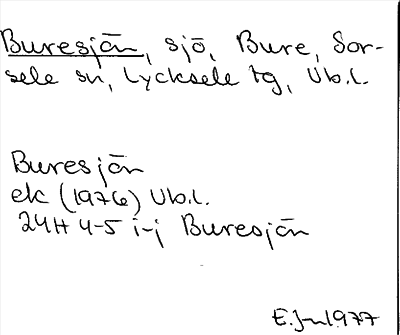 Buresjön, sjö, Bure, Sor-
sele sn, Lycksele tg, Vb.l.
Buresjön
ek (1976) Vb.l.
24H 4-5 i-j Buresjön
E.J-n 1977